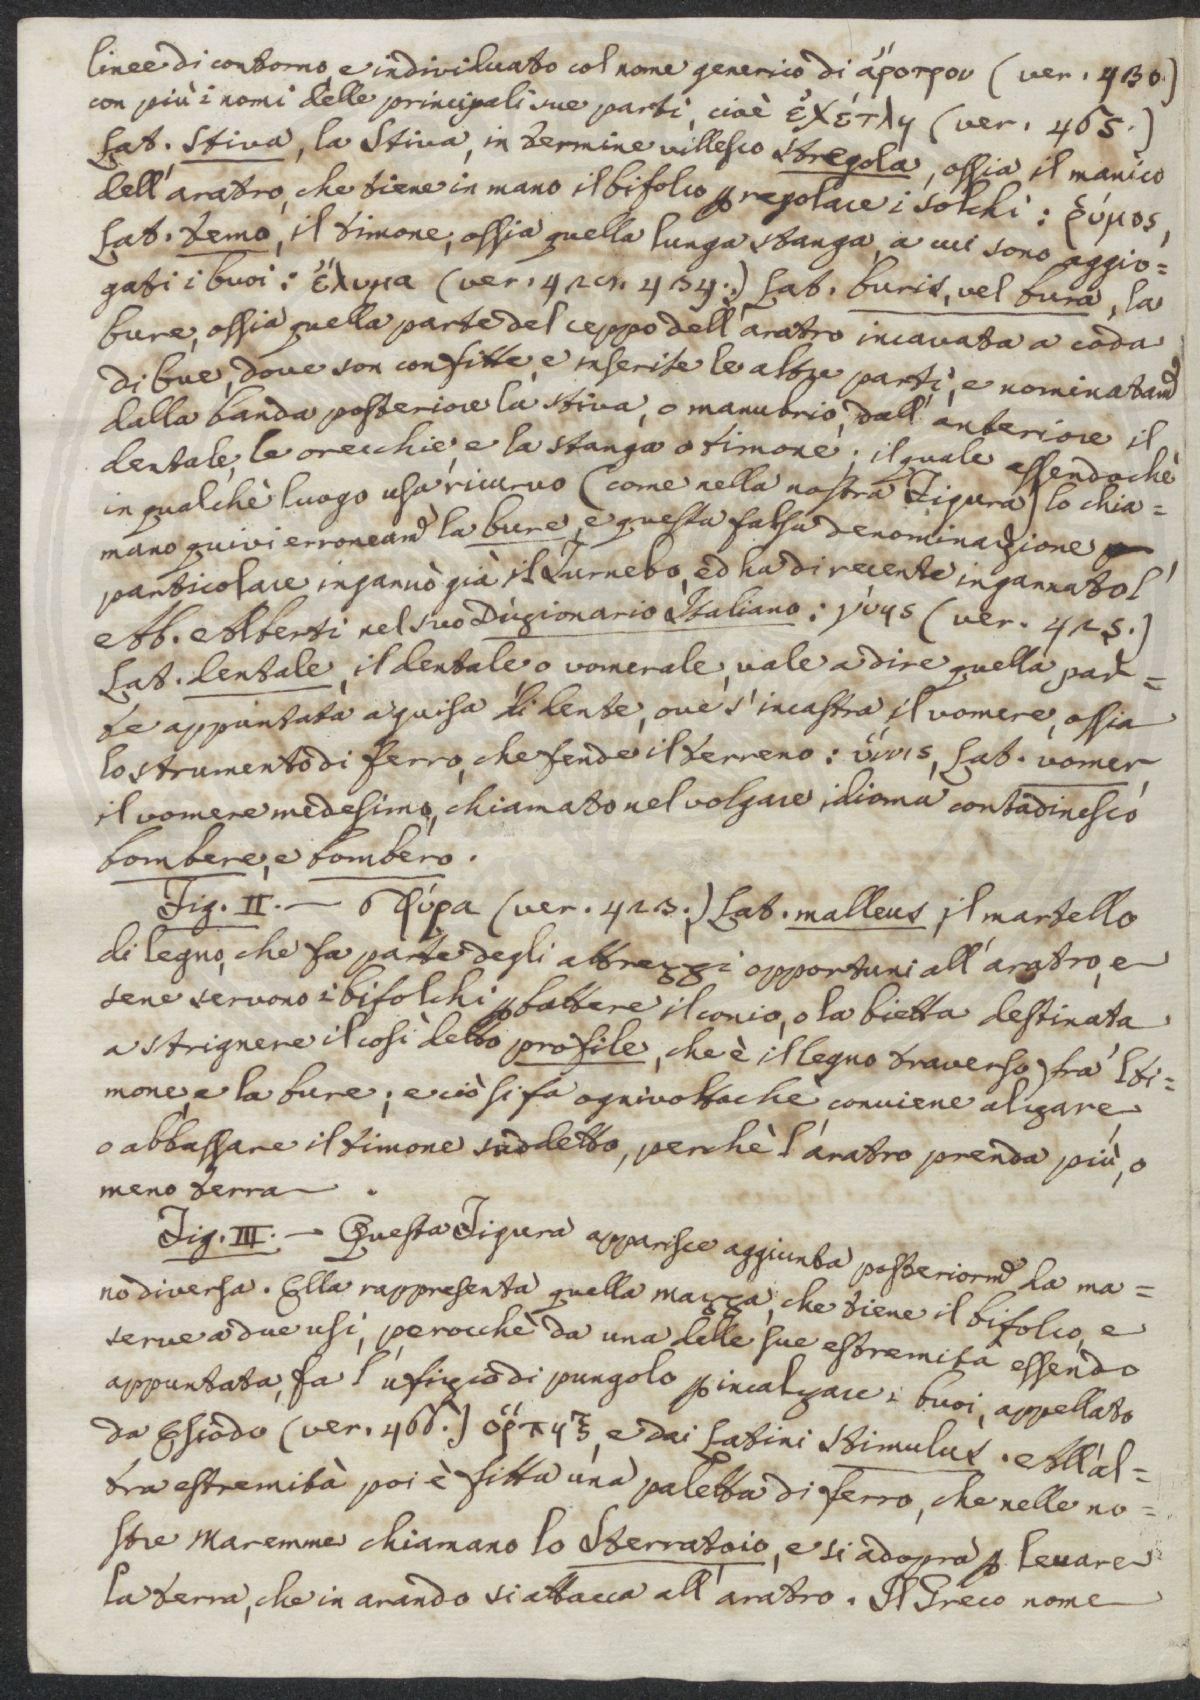 linee di contorno, e individuato col nome generico di ἄροτρον (ver. 430.)
con più i nomi delle principali sue parti, cioè ἐχέτλη (ver. 465.)
Lat. Stiva, la Stiva, in termine villesco Stregola, ossia il manico
dell'aratro, che tiene in mano il bifolco p regolare i solchi: ῥύμος,
Lat. temo, il timone, ossia quella lunga stanga, a cui sono aggio=
gati i buoi: ἔλυμα (ver. 428. 434.) Lat. buris, vel bura, la
bure, ossia quella parte del ceppo dell'aratro incavata a coda
di bue, dove son confitte, e inserite le altre parti, e nominatamᵉ
dalla banda posteriore la stiva, o manubrio, dall'anteriore il
dentale, le orecchie, e la stanga o timone; il quale essendochè
in qualchè luogo usa ricurvo (come nella nostra Figura) lo chia=
mano quivi erroneamᵉ la bure, e questa falsa denominazione
particolare ingannò già il Turnebo, ed ha di recente ingannato l'
Ab. Alberti nel suo Dizionario Italiano: γύης (ver. 425.)
Lat. dentale, il dentale, o vomerale, vale a dire quella par=
te appuntata a guisa di dente, ove s'incastra il vomere, ossia
lo strumento di ferro, che fende il terreno: ὕννις, Lat. vomer,
il vomere medesimo, chiamato nel volgare idioma contadinesco
bombere, e bombero.
Fig. II. — σφύρα (ver. 423.) Lat. malleus, il martello
di legno, che fa parte degli attrezzi opportuni all'aratro, e
sene servono i bifolchi p battere il conio, o la bietta destinata
a strignere il così detto profile, che è il legno traverso trà 'l ti=
mone, e la bure; e ciò si fa ognivoltachè conviene alzare,
o abbassare il timone suddetto, perchè l'aratro prenda più, o
meno terra.
Fig. III. — Questa Figura apparisce aggiunta posteriormᵉ da ma=
no diversa. Ella rappresenta quella mazza, che tiene il bifolco, e
serve a due usi, perocchè da una delle sue estremità essendo
appuntata, fa l'ufizio di pungolo p incalzare i buoi, appellato
da Esiodo (ver. 466.) ὅρπηξ, e dai Latini Stimulus. All'al=
tra estremità poi è fitta una paletta di ferro, che nelle no=
stre Maremme chiamano lo Sterratoio, e si adopra p levare
la terra, che in arando si attacca all'aratro. Il Greco nome